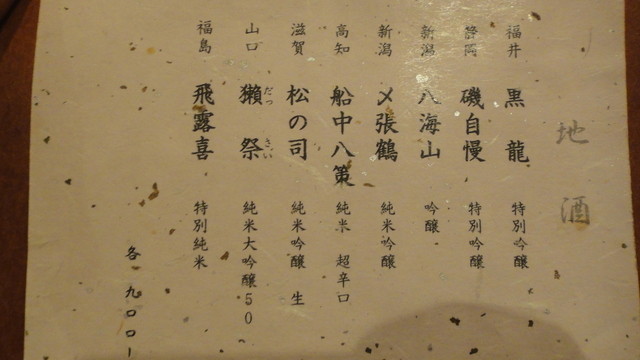 地酒
福井 黒龍 特別吟醸
静岡 磯自慢 特別吟醸
新潟 八海山 吟醸
新潟 〆張鶴 純米吟醸
高知 船中八策 純米 超辛口
滋賀 松の司 純米吟醸 生
山口 獺祭 だっさい 純米大吟醸50
福島 飛露喜 特別純米
各 九〇〇ー